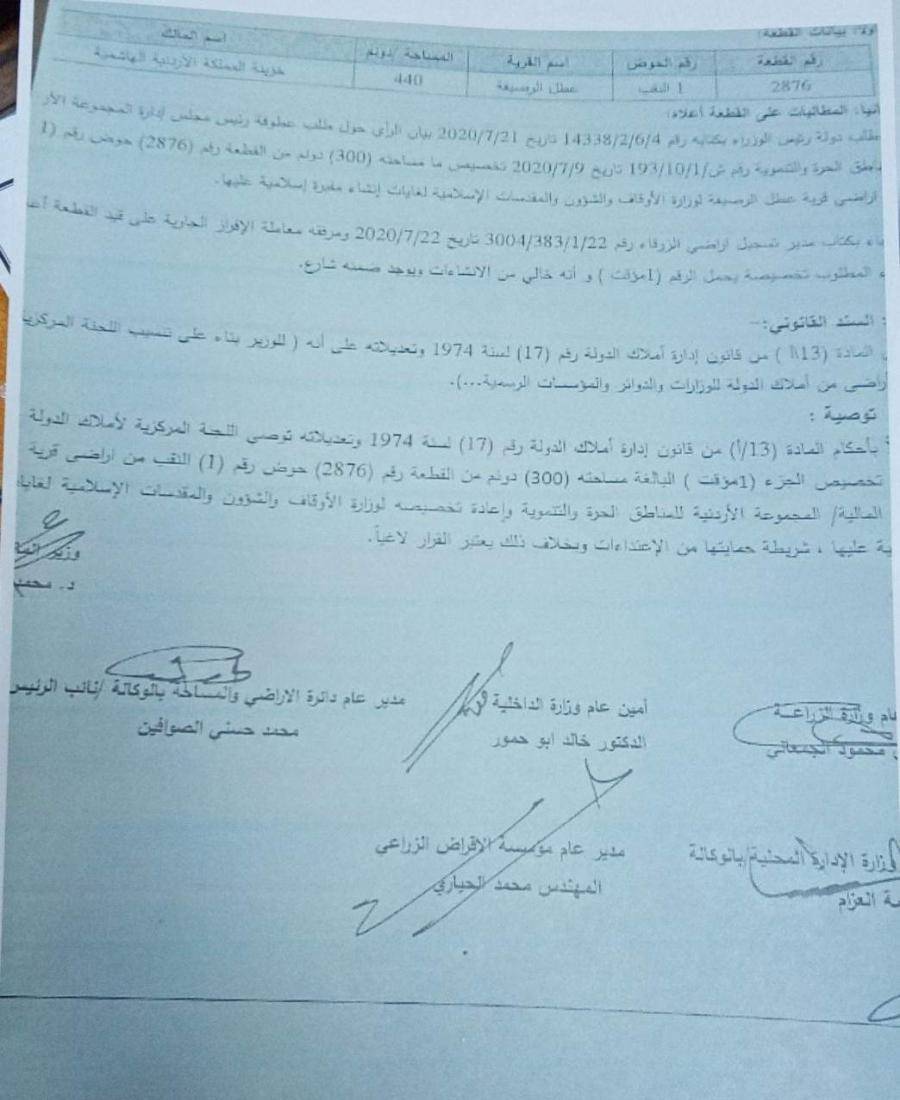 بيانات القطعة:
رقم القطعة رقم الحوض اسم القرية المساحة /دونم اسم المالك
2876 1 النقب عطل الرصيفة 440 خزينة المملكة الأردنية الهاشمية
المطالبات على القطعة أعلاه:
طلب دولة رئيس الوزراء بكتابه رقم 14338/2/6/4 تاريخ 2020/7/21 بيان الرأي حول طلب عطوفة رئيس مجلس إدارة المجموعة الأر
ناطق الحرة والتنموية رقم ش/193/10/1 تاريخ 2020/7/9 تخصيص ما مساحته (300) دونم من القطعة رقم (2876) حوض رقم (1
اراضي قرية عطل الرصيفة لوزارة الأوقاف والشؤون والمقدسات الإسلامية لغايات إنشاء مقبرة إسلامية عليها.
اء بكتاب مدير تسجيل اراضي الزرقاء رقم 3004/383/1/22 تاريخ 2020/7/22 ومرفقه معاملة الإفراز الجارية على قيد القطعة أعـ
ء المطلوب تخصيصة يحمل الرقم (1مؤقت ) و أنه خالي من الانشاءات ويوجد ضمنه شارع.
: السند القانوني:-
المادة (13/أ ) من قانون إدارة أملاك الدولة رقم (17) لسنة 1974 وتعديلاته على أنه ( للوزير بناء على تنسيب اللجنة المركزية
راضي من أملاك الدولة للوزارات والدوائر والمؤسسات الرسمية...).
توصية :
بأحكام المادة (13/أ) من قانون إدارة أملاك الدولة رقم (17) لسنة 1974 وتعديلاته توصي اللجنة المركزية لأملاك الدولة
تخصيص الجزء (1مؤقت ) البالغة مساحته (300) دونم من القطعة رقم (2876) حوض رقم (1) النقب من اراضي قرية
المالية/ المجموعة الأردنية للمناطق الحرة والتنموية وإعادة تخصيصه لوزارة الأوقاف والشؤون والمقدسات الإسلامية لغايا
ية عليها ، شريطة حمايتها من الإعتداءات وبخلاف ذلك يعتبر القرار لاغياً.
وزير الما
د. محمد
ام وزارة الزراعة أمين عام وزارة الداخلية مدير عام دائرة الاراضي والمساحة بالوكالة /نائب الرئيس
محمود الجمعاني الدكتور خالد ابو حمور محمد حسني الصوافين
وزارة الإدارة المحلية/بالوكالة مدير عام مؤسسة الاقراض الزراعي
ة العزام المهندس محمد الحياري